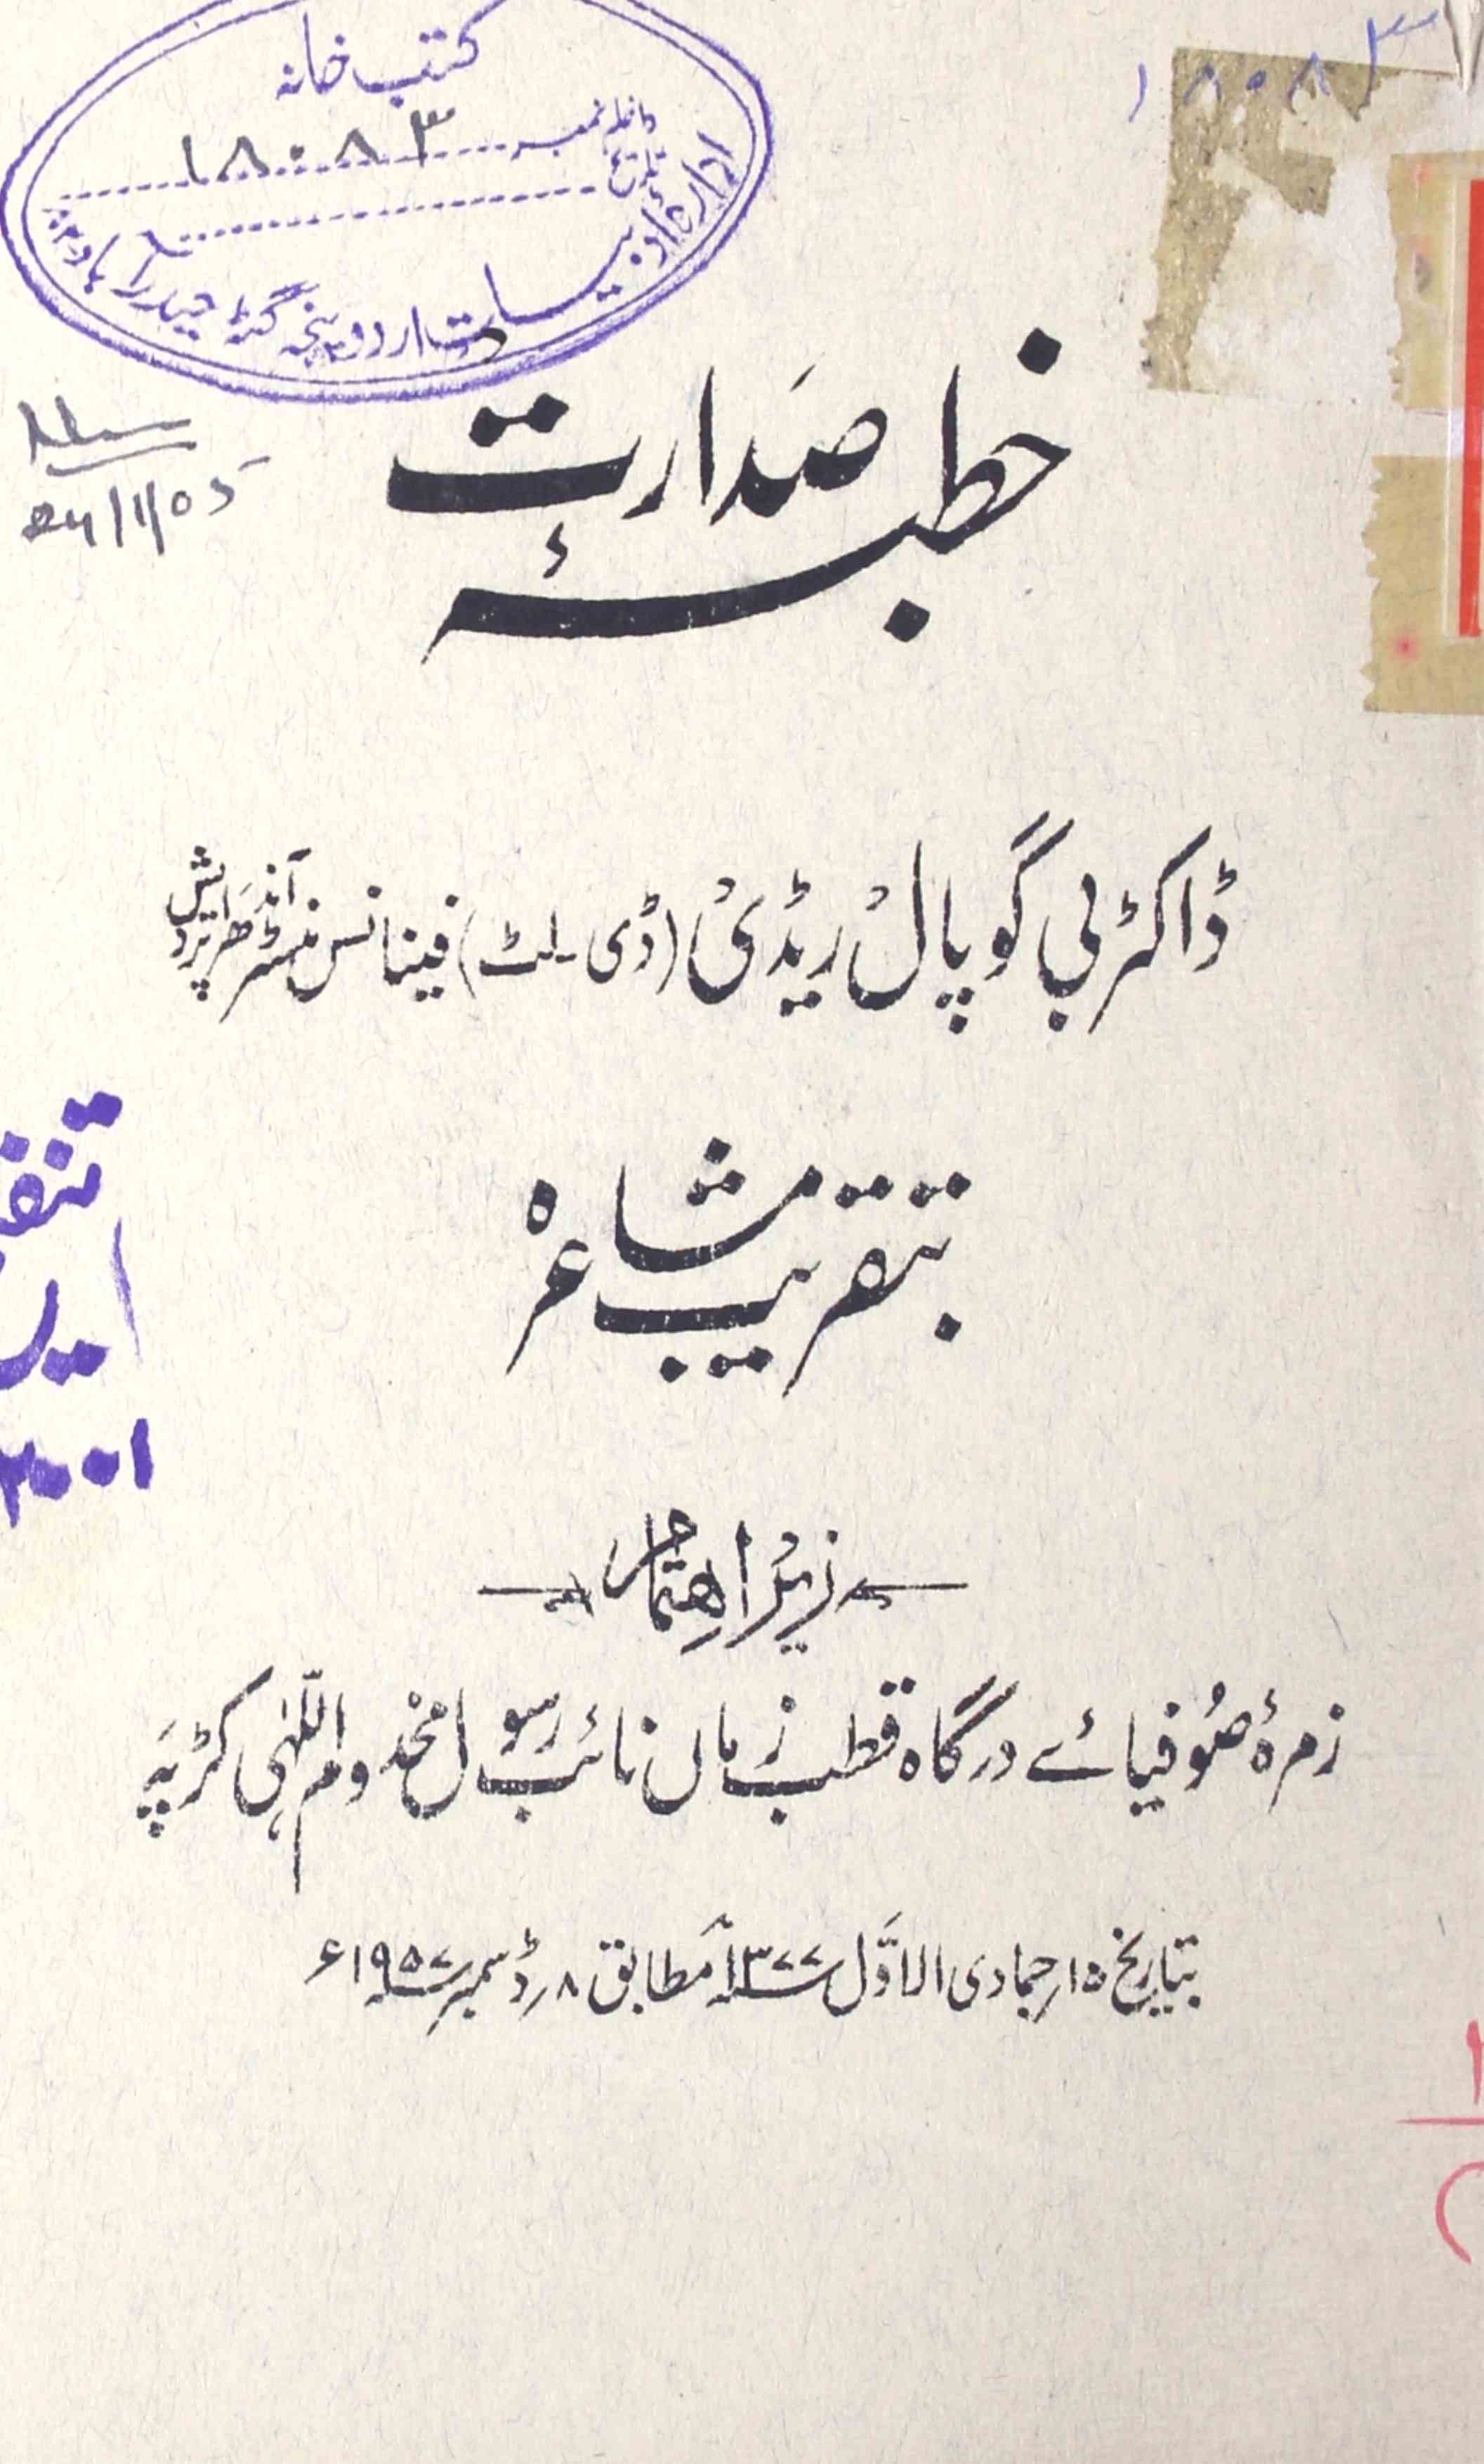 کتب خانہ
داخلہ نمبر ۱۸۰۸۳
تاریخ
ادارۂ ادبیات اردو پنجہ گٹہ حیدرآباد
۱۸۰۸۳
خطبۂ صدارت
ڈاکٹر بی گوپال ریڈی (ڈی-لٹ) فینانس منسٹر آندھرا پردیش
بتقریب مشاعرہ
زیر اہتمام
زمرۂ صوفیائے درگاہ قطب زماں نائب رسول مخدوم اللہی کڑپہ
بتاریخ ۱۵ر جمادی الاوّل ۱۳۷۷ھ مطابق ۸ر ڈسمبر ۱۹۵۷ء